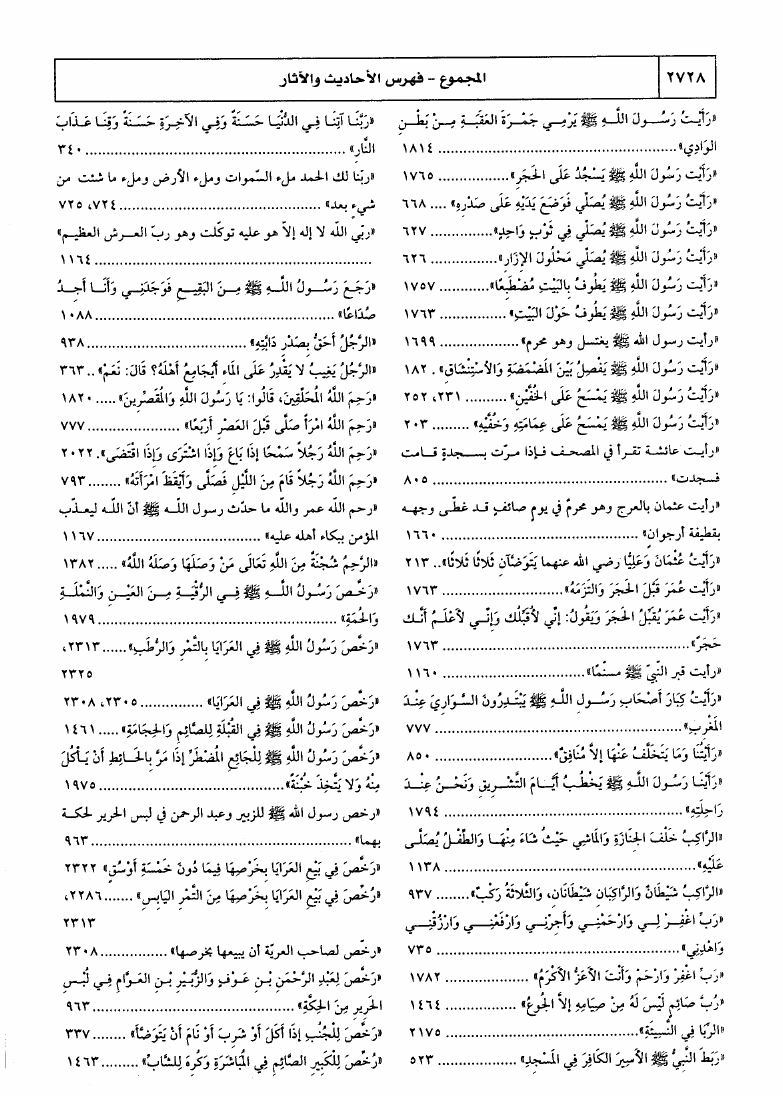 ٢٧٢٨
المجموع - فهرس الأحاديث والآثار
«رَأَيْتُ رَسُولَ اللهِ ﷺ يَرْمِي جَمْرَةَ العَقَبَةِ مِنْ بَطْنِ
الوَادِي» ................ ١٨١٤
«رَأَيْت رَسُولَ اللهِ ﷺ يَسْجُدُ عَلَى الحَجَرِ» ................ ١٧٦٥
«رَأَيْت رَسُولَ اللهِ ﷺ يُصَلِّي فَوَضَعَ يَدَيْهِ عَلَى صَدْرِهِ» .... ٦٦٨
«رَأَيْت رَسُولَ اللهِ ﷺ يُصَلِّي فِي ثَوْبٍ وَاحِدٍ» ................ ٦٢٧
«رَأَيْت رَسُولَ اللهِ ﷺ يُصَلِّي مَحْلُولَ الإِزَارِ» ................ ٦٢٦
«رَأَيْت رَسُولَ اللهِ ﷺ يَطُوفُ بِالبَيْتِ مُضْطَبِعًا» .......... ١٧٥٧
«رَأَيْت رَسُولَ اللهِ ﷺ يَطُوفُ حَوْلَ البَيْتِ» ............ ١٧٦٣
«رأيت رسول الله ﷺ يغتسل وهو محرم» ................ ١٦٩٩
«رَأَيْت رَسُولَ اللهِ ﷺ يَفْصِلُ بَيْنَ المَضْمَضَةِ وَالاسْتِنْشَاقِ» . ١٨٢
«رَأَيْت رَسُولَ اللهِ ﷺ يَمْسَحُ عَلَى الخُفَّيْنِ» ........ ٢٣١، ٢٥٢
«رَأَيْت رَسُولَ اللهِ ﷺ يَمْسَحُ عَلَى عِمَامَتِهِ وَخُفَّيْهِ» ........ ٢٠٣
«رأيت عائشة تقرأ في المصحف فإذا مرّت بسجدةٍ قامت
فسجدت» ................ ٨٠٥
«رأيت عثمان بالعرج وهو محرمٌ في يومٍ صائفٍ قد غطّى وجهه
بقطيفة أرجوان» ................ ١٦٦٠
«رَأَيْتُ عُثْمَانَ وَعَلِيًّا رضي الله عنهما يَتَوَضَّآنِ ثَلاثًا ثَلاثًا» .. ٢١٣
«رَأَيْت عُمَرَ قَبَّلَ الحَجَرَ وَالتَزَمَهُ» ................ ١٧٦٣
«رَأَيْت عُمَرَ يُقَبِّلُ الحَجَرَ وَيَقُولُ: إنِّي لأُقَبِّلُك وَإِنِّي لأَعْلَمُ أَنَّك
حَجَرٌ» ................ ١٧٦٣
«رأيت قبر النّبيّ ﷺ مسنّمًا» ................ ١١٦٠
«رَأَيْتُ كِبَارَ أَصْحَابِ رَسُولِ اللهِ ﷺ يَبْتَدِرُونَ السَّوَارِيَ عِنْدَ
المَغْرِبِ» ................ ٧٧٧
«رَأَيْتُنَا وَمَا يَتَخَلَّفُ عَنْهَا إلاَّ مُنَافِقٌ» ................ ٨٥٠
«رَأَيْنَا رَسُولَ اللهِ ﷺ يَخْطُبُ أَيَّامَ التَّشْرِيقِ وَنَحْنُ عِنْدَ
رَاحِلَتِهِ» ................ ١٧٩٤
«الرَّاكِبُ خَلْفَ الجِنَازَةِ وَالمَاشِي حَيْثُ شَاءَ مِنْهَا وَالطِّفْلُ يُصَلَّى
عَلَيْهِ» ................ ١١٣٨
«الرَّاكِبُ شَيْطَانٌ وَالرَّاكِبَانِ شَيْطَانَانِ، وَالثَّلاثَةُ رَكْبٌ» ........ ٩٣٧
«رَبِّ اغْفِرْ لِي وَارْحَمْنِي وَأَجِرْنِي وَارْفَعْنِي وَارْزُقْنِي
وَاهْدِنِي» ................ ٧٣٥
«رَبِّ اغْفِرْ وَارْحَمْ وَأَنْتَ الأَعَزُّ الأَكْرَمُ» ............ ١٧٨٢
«رُبَّ صَائِمٍ لَيْسَ لَهُ مِنْ صِيَامِهِ إلاَّ الجُوعُ» ............ ١٤٦٤
«الرِّبَا فِي النَّسِيئَةِ» ................ ٢١٧٥
«رَبَطَ النَّبِيُّ ﷺ الأَسِيرَ الكَافِرَ فِي المَسْجِدِ» ............ ٥٢٣
«رَبَّنَا آتِنَا فِي الدُّنْيَا حَسَنَةً وَفِي الآخِرَةِ حَسَنَةً وَقِنَا عَذَابَ
النَّارِ» ................ ٣٤٠
«ربّنا لك الحمد ملء السّموات وملء الأرض وملء ما شئت من
شيءٍ بعد» ................ ٧٢٤، ٧٢٥
«ربّي الله لا إله إلاّ هو عليه توكّلت وهو ربّ العرش العظيم»
................ ١١٦٤
«رَجَعَ رَسُولُ اللهِ ﷺ مِنَ البَقِيعِ فَوَجَدَنِي وَأَنَا أَجِدُ
صُدَاعًا» ................ ١٠٨٨
«الرَّجُلُ أَحَقُّ بِصَدْرِ دَابَّتِهِ» ................ ٩٣٨
«الرَّجُلُ يَغِيبُ لا يَقْدِرُ عَلَى المَاءِ أَيُجَامِعُ أَهْلَهُ؟ قَالَ: نَعَمْ» .. ٣٦٣
«رَحِمَ اللهُ المُحَلِّقِينَ، قَالُوا: يَا رَسُولَ اللهِ وَالمُقَصِّرِينَ» ..... ١٨٢٠
«رَحِمَ اللهُ امْرَأً صَلَّى قَبْلَ العَصْرِ أَرْبَعًا» ................ ٧٧٧
«رَحِمَ اللهُ رَجُلاً سَمْحًا إذَا بَاعَ وَإِذَا اشْتَرَى وَإِذَا اقْتَضَى». ٢٠٢٢
«رَحِمَ اللهُ رَجُلاً قَامَ مِنَ اللَّيْلِ فَصَلَّى وَأَيْقَظَ امْرَأَتَهُ» ........ ٧٩٣
«رحم الله عمر والله ما حدّث رسول الله ﷺ أنّ الله ليعذّب
المؤمن ببكاء أهله عليه» ................ ١١٦٧
«الرَّحِمُ شُجْنَةٌ مِنَ اللهِ تَعَالَى مَنْ وَصَلَهَا وَصَلَهُ اللهُ» ..... ١٣٨٢
«رَخَّصَ رَسُولُ اللهِ ﷺ فِي الرُّقْيَةِ مِنَ العَيْنِ وَالنَّمْلَةِ
وَالحُمَةِ» ................ ١٩٧٩
«رَخَّصَ رَسُولُ اللهِ ﷺ فِي العَرَايَا بِالتَّمْرِ وَالرُّطَبِ» ...... ٢٣١٣،
٢٣٢٥
«رَخَّصَ رَسُولُ اللهِ ﷺ فِي العَرَايَا» ............ ٢٣٠٥، ٢٣٠٨
«رَخَّصَ رَسُولُ اللهِ ﷺ فِي القُبْلَةِ لِلصَّائِمِ وَالحِجَامَةِ» ..... ١٤٦١
«رَخَّصَ رَسُولُ اللهِ ﷺ لِلْجَائِعِ المُضْطَرِّ إذَا مَرَّ بِالحَائِطِ أَنْ يَأْكُلَ
مِنْهُ وَلا يَتَّخِذَ خُبْنَةً» ................ ١٩٧٥
«رخص رسول الله ﷺ للزبير وعبد الرحمن في لبس الحرير لحكة
بهما» ................ ٩٦٣
«رَخَّصَ فِي بَيْعِ العَرَايَا بِخَرْصِهَا فِيمَا دُونَ خَمْسَةِ أَوْسُقٍ» ٢٣٢٢
«رُخِّصَ فِي بَيْعِ العَرَايَا بِخَرْصِهَا مِنَ التَّمْرِ اليَابِسِ» ....... ٢٢٨٦،
٢٣١٣
«رخّص لصاحب العريّة أن يبيعها بخرصها» ................ ٢٣٠٨
«رَخَّصَ لِعَبْدِ الرَّحْمَنِ بْنِ عَوْفٍ وَالزُّبَيْرِ بْنِ العَوَّامِ فِي لُبْسِ
الحَرِيرِ مِنَ الحِكَّةِ» ................ ٩٦٣
«رَخَّصَ لِلْجُنُبِ إذَا أَكَلَ أَوْ شَرِبَ أَوْ نَامَ أَنْ يَتَوَضَّأَ» ........ ٣٣٧
«رُخِّصَ لِلْكَبِيرِ الصَّائِمِ فِي المُبَاشَرَةِ وَكُرِهَ لِلشَّابِّ» ......... ١٤٦٣